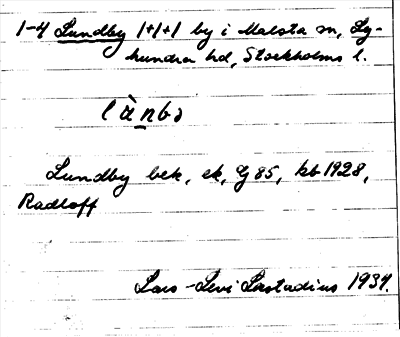 1-4 Lundby 1+1+1 by i Malsta sn, Ly-
hundra hd, Stockholms l.
Lundby bek, ek, Gj 85, kb 1928,
Radloff
Lars-Levi Læstadius 1934.